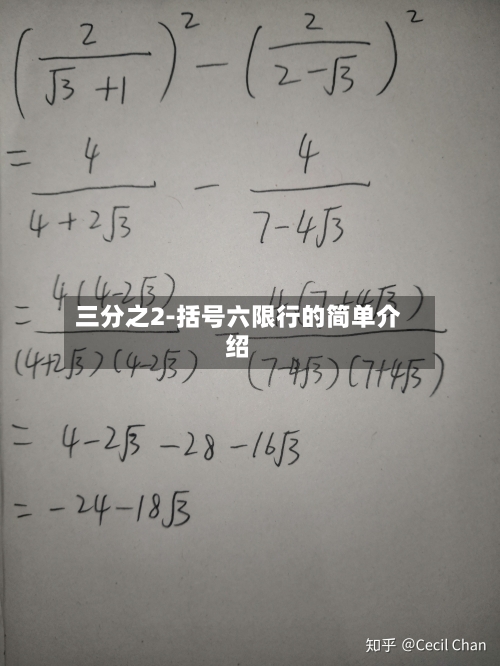 (2/(√3+1))² - (2/(2-√3))²
= 4/(4+2√3) - 4/(7-4√3)
= 4(4-2√3)/((4+2√3)(4-2√3)) - 4(7+4√3)/((7-4√3)(7+4√3))
三分之2-括号六限行的简单介
绍
= 4-2√3-28-16√3
= -24-18√3
知乎 @Cecil Chan